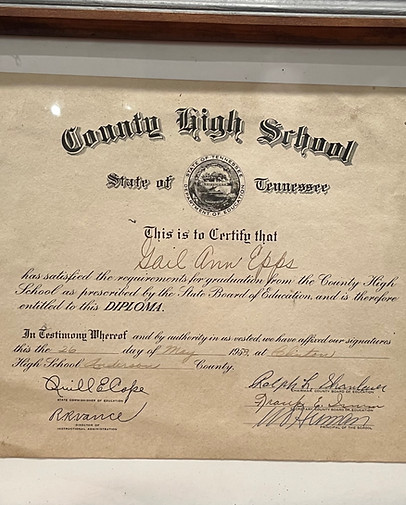 County High School
State of Tennessee
STATE OF TENNESSEE
DEPARTMENT OF EDUCATION
This is to Certify that
Gail Ann Epps
has satisfied the requirements for graduation from the County High
School as prescribed by the State Board of Education, and is therefore
entitled to this DIPLOMA.
In Testimony Whereof and by authority in us vested, we have affixed our signatures
this the 26 day of May 1959, at Clinton
High School Anderson County.
Quill E Cope
STATE COMMISSIONER OF EDUCATION
R R Vance
DIRECTOR OF
INSTRUCTIONAL ADMINISTRATION
Ralph L.
COUNTY BOARD OF EDUCATION
Frank E. Irwin
COUNTY BOARD OF EDUCATION
Human
PRINCIPAL OF THE SCHOOL